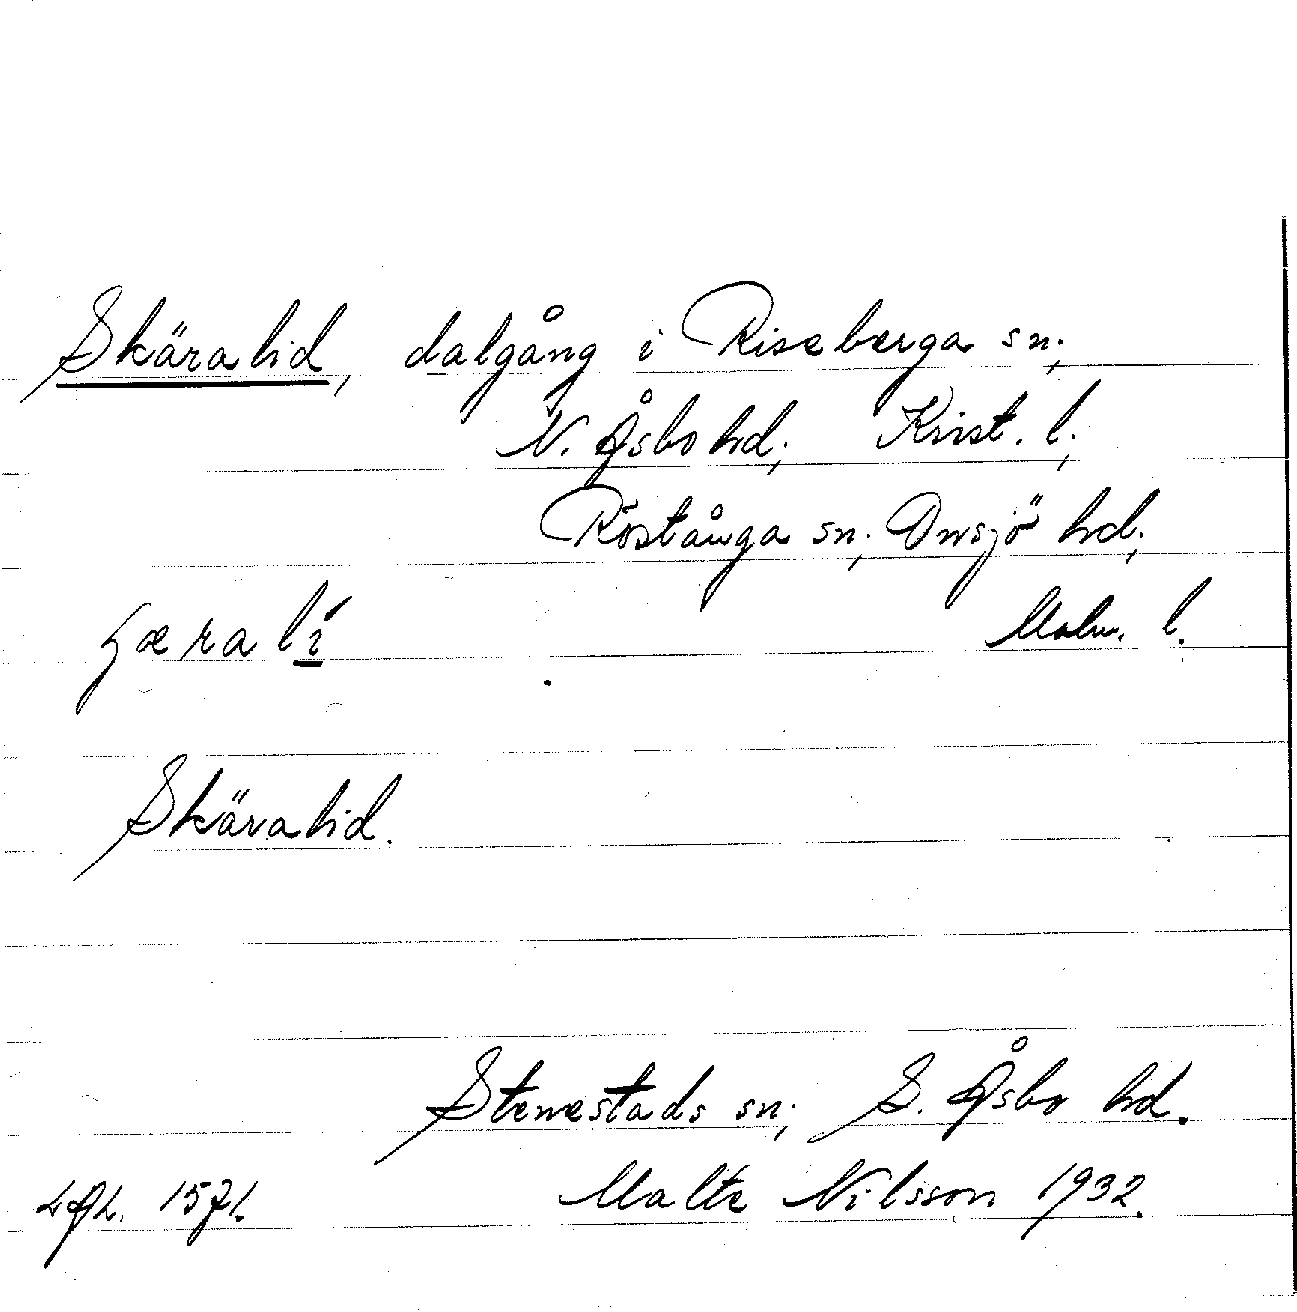 Skäralid, dalgång i Riseberga sn;
N. Åsbo hd; Krist. l.;
Röstånga sn; Onsjö hd;
Malm. l.
ʒæra lí
Skäralid.
Stenestads sn; S. Åsbo hd.
LAL. 1571. Malte Nilsson 1932.